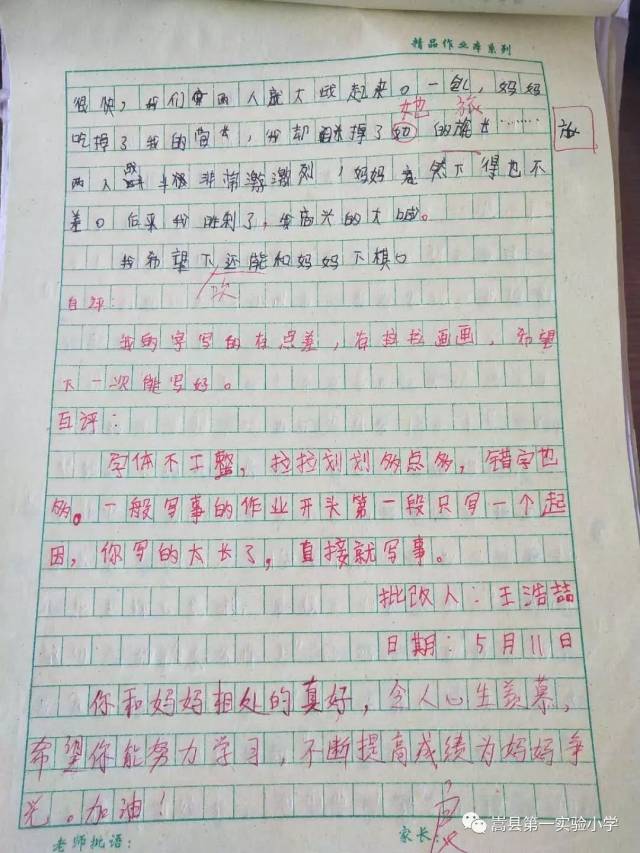 精品作业本系列
很快,我们俩人就大战起来。一包,妈妈
她 旅
吃掉了我的营长,我却吃掉了她的旅长……
旅
两人战斗非常激激烈!妈妈竟然下得也不
差。后来我胜利了,高兴的大喊。
我希望下还能和妈妈下棋。
次
自评:
我的字写的有点差,有拉拉画画,希望
下一次能写好。
互评:
字体不工整,拉拉划划多点多,错字也
多。一般写事的作业开头第一段只写一个起
因,你写的太长了,直接就写事。
批改人:王浩喆
日期:5月11日
你和妈妈相处的真好,令人心生羡慕,
希望你能努力学习,不断提高成绩为妈妈争
光。加油!
老师批语: 家长:
嵩县第一实验小学